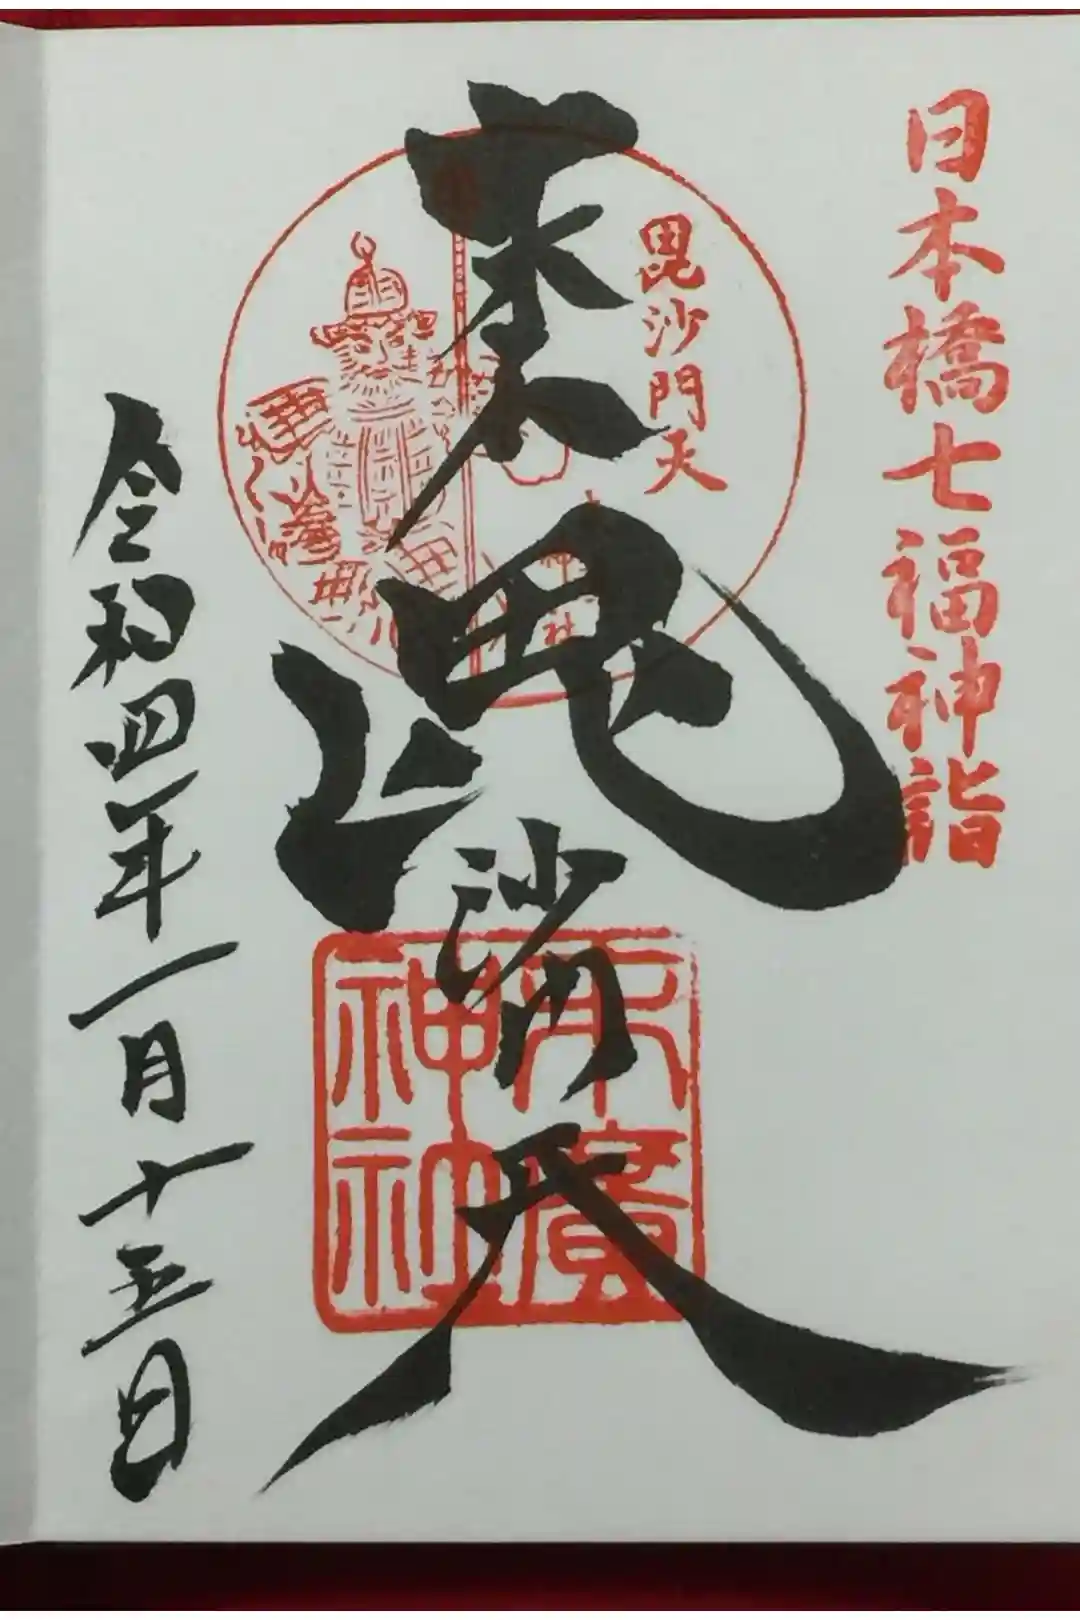 日本橋七福神詣
毘沙門天
神社
毘沙門天
末廣神社
令和四年一月十五日